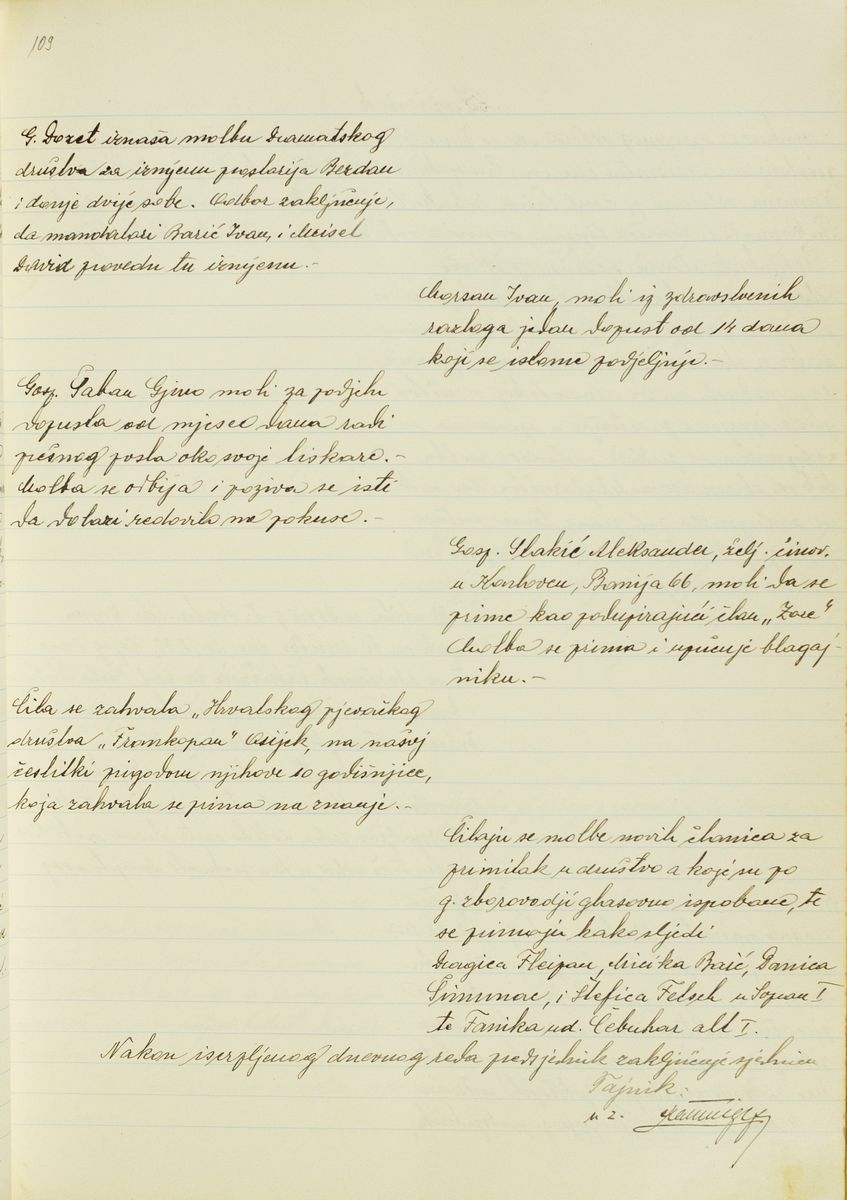 109
G. Dozet iznaša molbu Dramatskog
društva za izmjenu prostorija Bezdan
i donje dvije sobe. Odbor zaključuje,
da mandatari Barić Ivan, i Meisel
David provedu tu izmjenu.-
Morsan Ivan, moli iz zdravstvenih
razloga jedan dopust od 14 dana
koji se istome podjeljuje.-
Gosp. Šaban Gjuro moli za podjelu
dopusta od mjesec dana radi
prešnog posla oko svoje tiskare.-
Molba se odbija i poziva se isti
da dolazi redovito na pokuse.-
Gosp. Slakić Aleksander, želj. činov.
u Karlovcu, Banija 66, moli da se
prime kao podupirajući član „Zore"
Molba se prima i upućuje blagaj-
niku.-
Čita se zahvala „Hrvatskog pjevačkog
društva „Frankopan" Osijek, na našoj
čestitki prigodom njihove 10 godišnjice,
koja zahvala se prima na znanje.-
Čitaju se molbe novih članica za
primitak u društvo a koje su po
g. zborovodji glasovno ispobane, te
se primaju kako sljedi
Dragica Fleipan, Micika Bašć, Danica
Šimunac, i Štefica Felsch u Sopran I
te Fanika ud. Čebuhar alt I.
Nakon iscrpljenog dnevnog reda predsjednik zaključuje sjednicu
Tajnik:
u z.